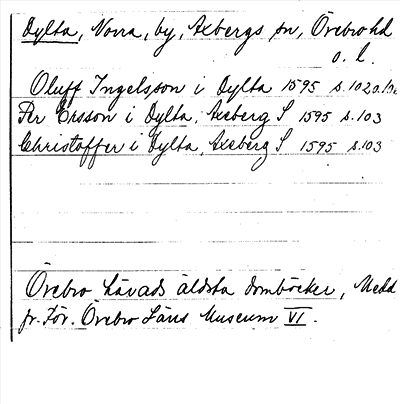 Dylta, Norra, by, Axbergs sn, Örebro hd
o. l.
Oluff Ingelsson i Dylta 1595 s. 102 a.
Per Ersson i Dylta, Axeberg S 1595 s. 103
Christoffer i Dylta, Axeberg S 1595 s. 103
Örebro härads äldsta domböcker, Medd
fr. För. Örebro Läns Museum VI.